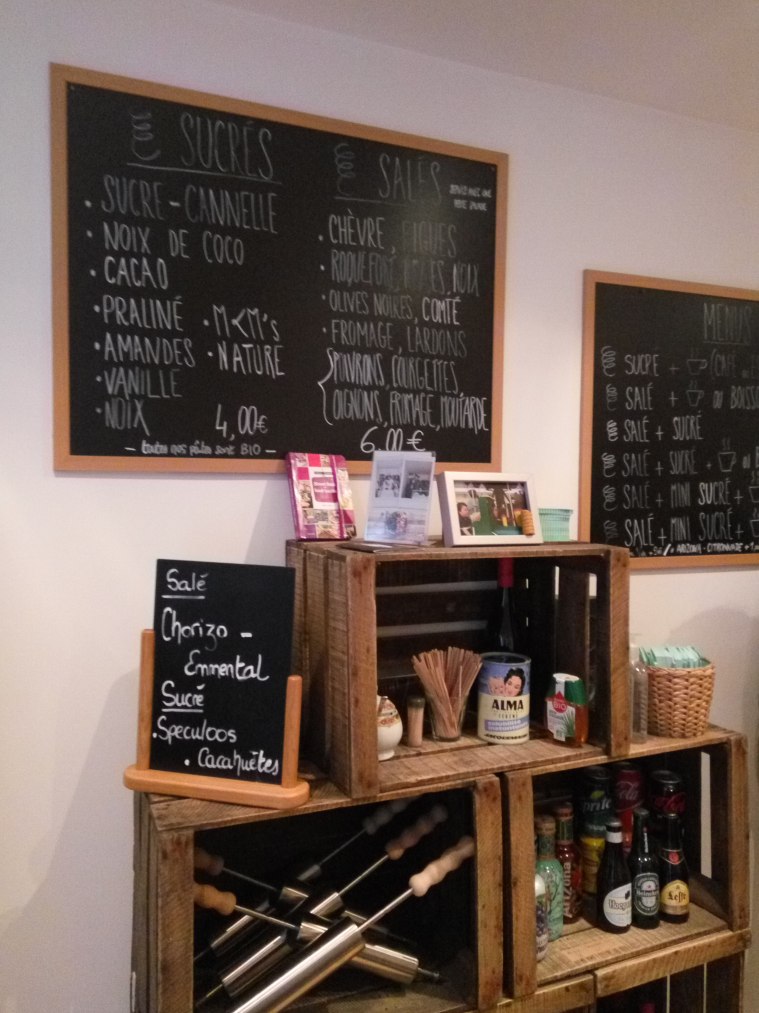 SUCRÉS
• SUCRE - CANNELLE
• NOIX DE COCO
• CACAO
• PRALINÉ • M&M's
• AMANDES • NATURE
• VANILLE
• NOIX 4,00€
- toutes nos pâtes sont BIO -
SALÉS SERVIS AVEC UNE
PETITE SALADE
• CHÈVRE, FIGUES
• ROQUEFORT, POIRES, NOIX
• OLIVES NOIRES, COMTÉ
• FROMAGE, LARDONS
POIVRONS, COURGETTES,
OIGNONS, FROMAGE, MOUTARDE
6,00€
MENUS
SUCRÉ + (CAFÉ
SALÉ + ou BOISS
SALÉ + SUCRÉ
SALÉ + SUCRÉ +
SALÉ + MINI SUCRÉ +
SALÉ + MINI SUCRÉ +
ARIZONA - CITRONNADE +
Salé
Chorizo -
Emmental
Sucré
• Speculoos
• Cacahuètes
ALMA
BIO
Sprite
Coca-Cola
ARIZONA
Heineken
Leffe